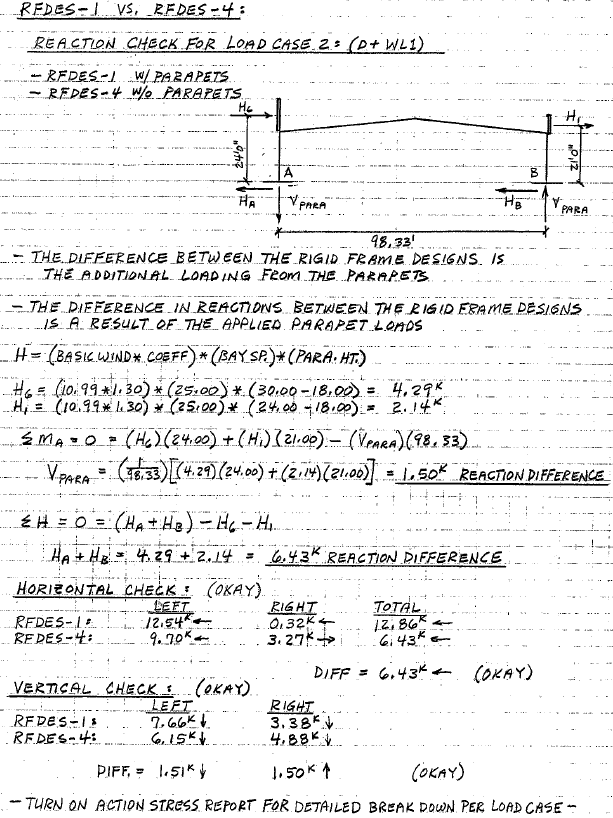 RFDES-1 VS. RFDES-4:
REACTION CHECK FOR LOAD CASE 2: (D+WL1)
- RFDES-1 W/ PARAPETS
- RFDES-4 W/O PARAPETS
H6
H1
24'0"
21'0"
A
B
HA
VPARA
HB
VPARA
98.33'
- THE DIFFERENCE BETWEEN THE RIGID FRAME DESIGNS IS
THE ADDITIONAL LOADING FROM THE PARAPETS
- THE DIFFERENCE IN REACTIONS BETWEEN THE RIGID FRAME DESIGNS
IS A RESULT OF THE APPLIED PARAPET LOADS
H = (BASIC WIND * COEFF) * (BAY SP.) * (PARA. HT.)
H6 = (10.99*1.30) * (25.00) * (30.00-18.00) = 4.29K
H1 = (10.99*1.30) * (25.00) * (24.00-18.00) = 2.14K
ΣMA = 0 = (H6)(24.00) + (H1)(21.00) - (VPARA)(98.33)
VPARA = (1/98.33)[(4.29)(24.00) + (2.14)(21.00)] = 1.50K REACTION DIFFERENCE
ΣH = 0 = (HA + HB) - H6 - H1
HA + HB = 4.29 + 2.14 = 6.43K REACTION DIFFERENCE
HORIZONTAL CHECK: (OKAY)
LEFT RIGHT TOTAL
RFDES-1: 12.54K← 0.32K← 12.86K←
RFDES-4: 9.70K← 3.27K→ 6.43K←
DIFF = 6.43K← (OKAY)
VERTICAL CHECK: (OKAY)
LEFT RIGHT
RFDES-1: 7.66K↓ 3.38K↓
RFDES-4: 6.15K↓ 4.88K↓
DIFF. = 1.51K↓ 1.50K↑ (OKAY)
- TURN ON ACTION STRESS REPORT FOR DETAILED BREAK DOWN PER LOAD CASE -